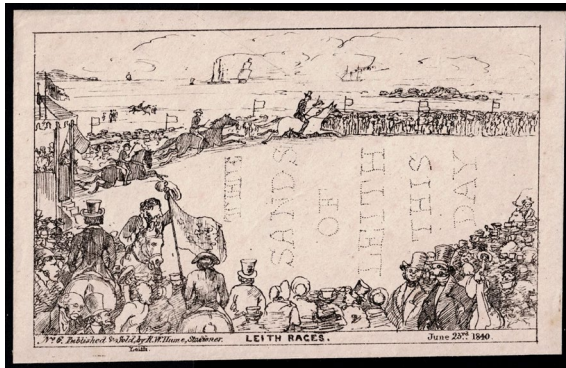 THE
SANDS
OF
LEITH
THIS
DAY
No 6. Published & Sold, by R.W. Hume, Stationer.
Leith.
LEITH RACES.
June 23rd. 1840.